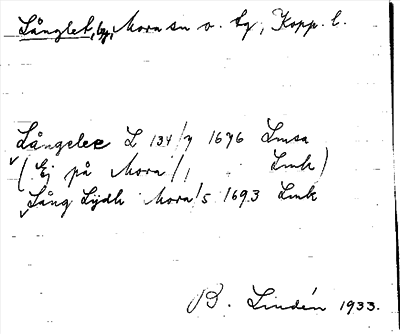 Långlet, by, Mora sn o. tg, Kopp. l.
Långelee L 134/7 1676 Lmsa
(Ej på Mora 1/1 Lmk)
Lång Lijdh Mora 1/5 1693 Lmk
B. Lindén 1933.